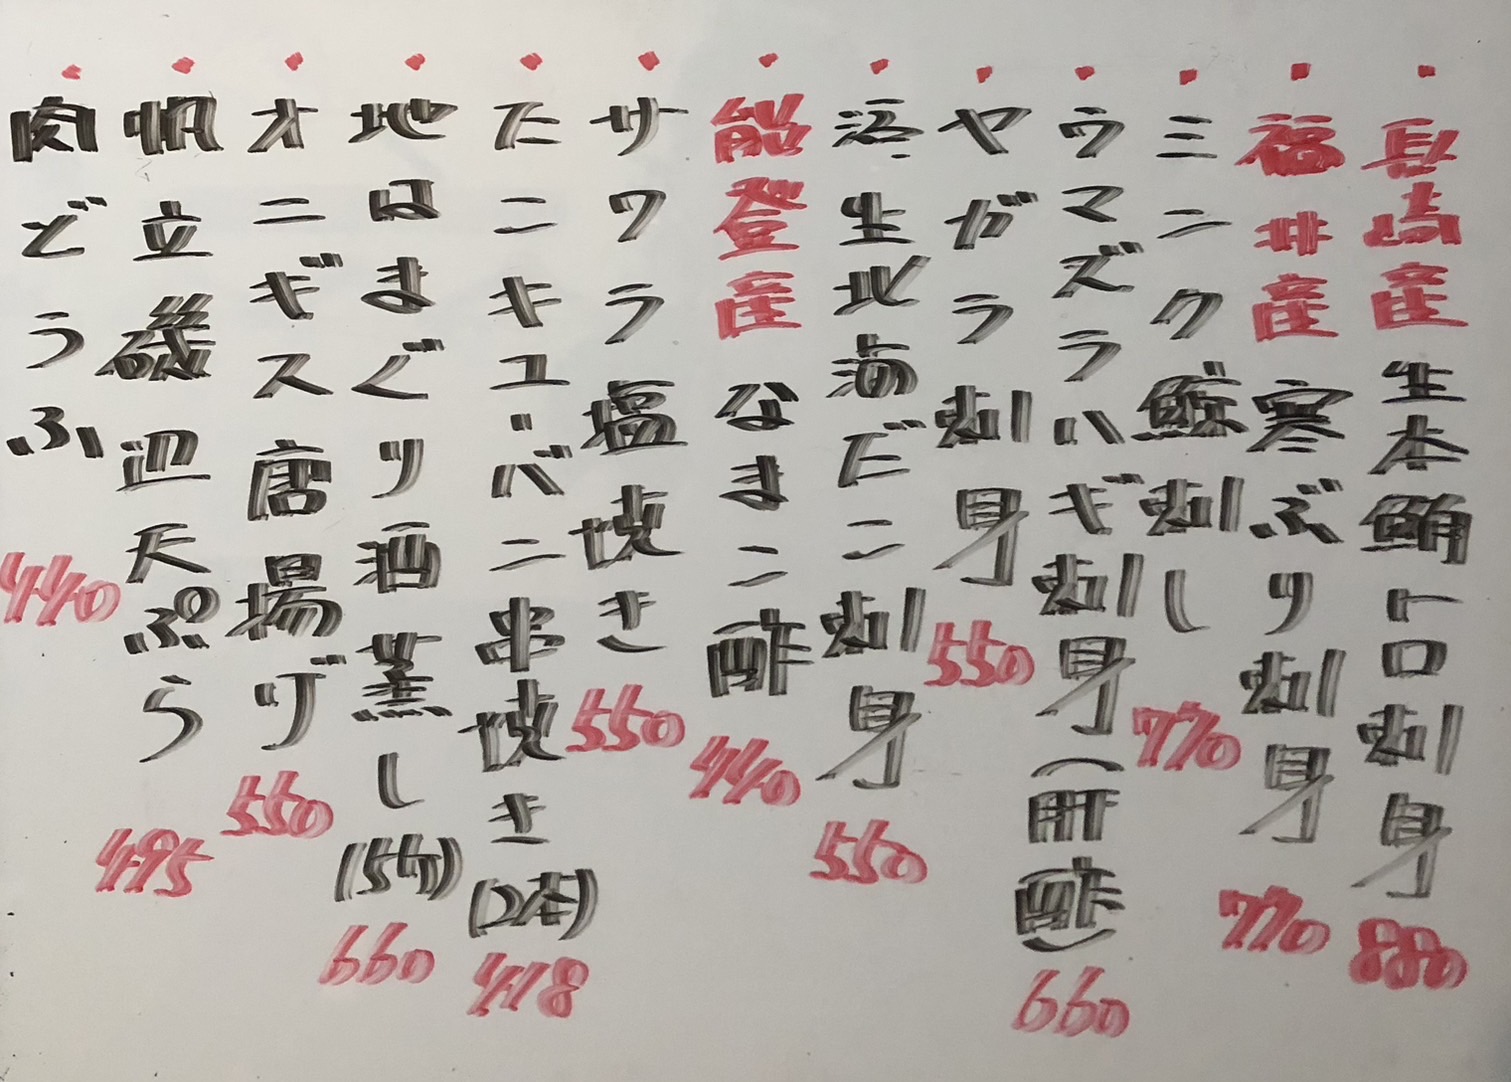 ・長崎産 生本鮪トロ刺身 880
・福井産 寒ぶり刺身 770
・ミンク鯨刺し 770
・ウマズラハギ刺身(肝酢) 660
・ヤガラ刺身 550
・生北海だこ刺身 550
・能登産 なまこ酢 440
・サワラ塩焼き 550
・たこキュ・バニ串焼き(2本) 418
・地はまぐり酒蒸し(5ケ) 660
・オニギス唐揚げ 550
・帆立磯辺天ぷら 495
・肉どうふ 440